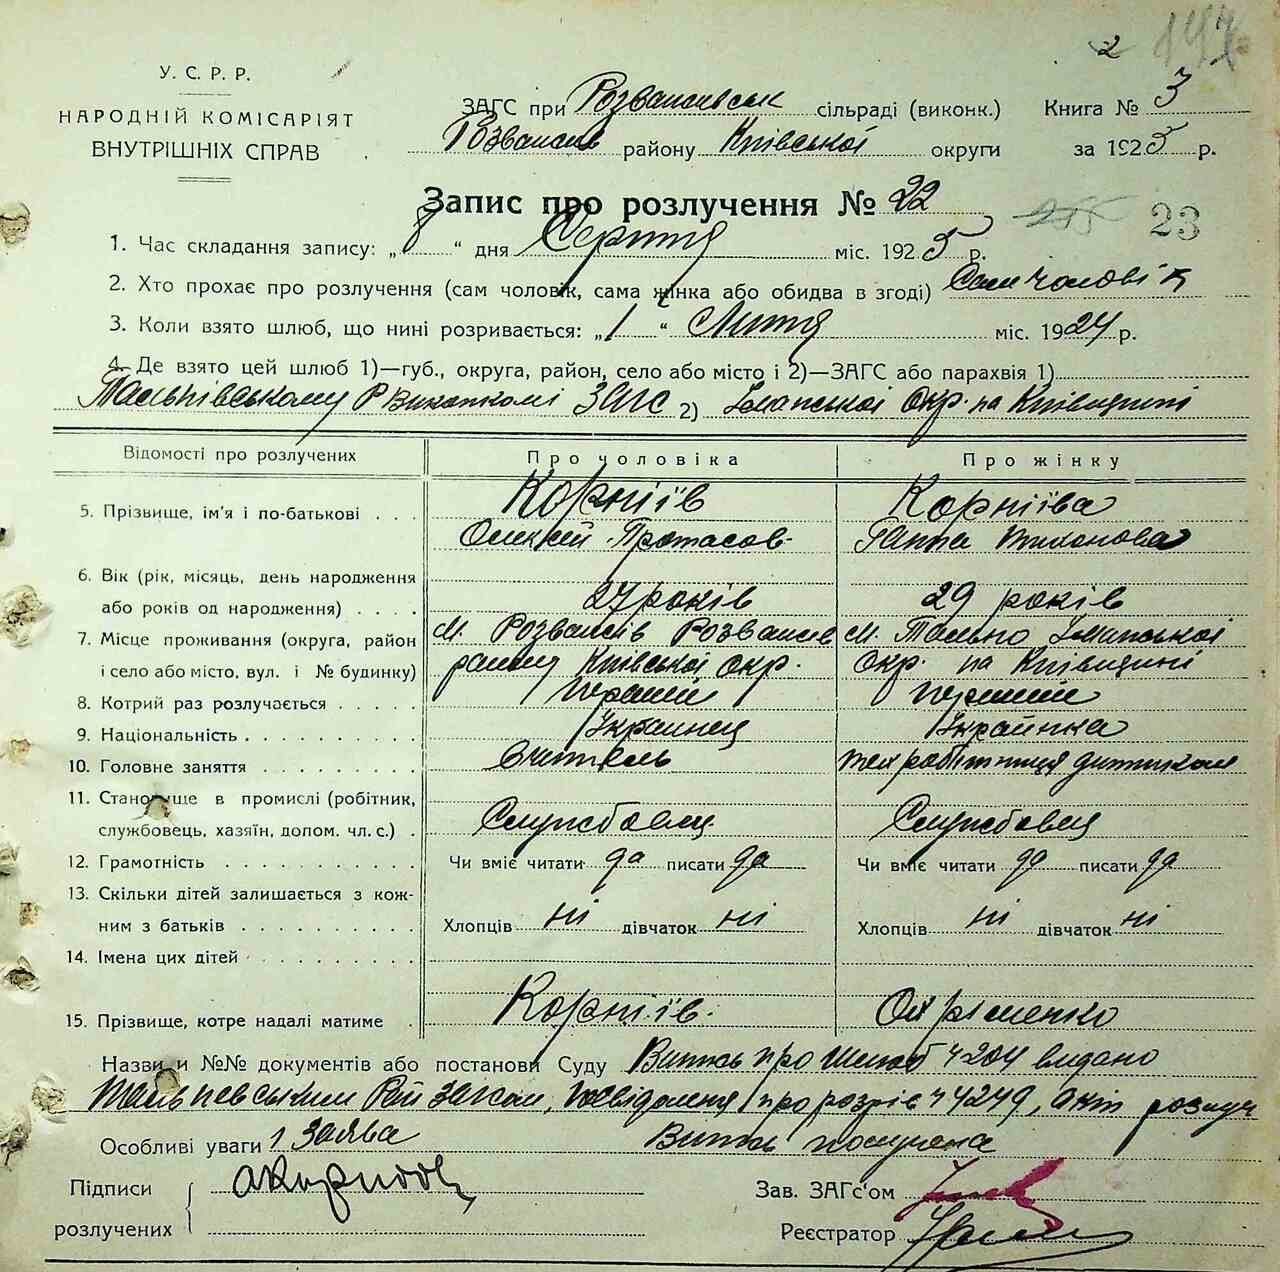 2
У. С. Р. Р.
НАРОДНІЙ КОМІСАРІЯТ
ВНУТРІШНІХ СПРАВ
ЗАГС при Розважевськ сільраді (виконк.) Книга № 3
Розважів району Київської округи за 1925 р.
Запис про розлучення № 22
23
1. Час складання запису: „8“ дня Серпня міс. 1925 р.
2. Хто прохає про розлучення (сам чоловік, сама жінка або обидва в згоді) Сам чоловік
3. Коли взято шлюб, що нині розривається: „1“ Липня міс. 1924 р.
4. Де взято цей шлюб 1)—губ., округа, район, село або місто і 2)—ЗАГС або парахвія 1)
Тальнівському Рвиконкомі ЗАГС 2) Уманської Окр. на Київщині
Відомості про розлучених Про чоловіка Про жінку
5. Прізвище, ім'я і по-батькові Корніїв Корніїва
Олексій Протасов Ганна Тихонова
6. Вік (рік, місяць, день народження
або років од народження) 27 років 29 років
7. Місце проживання (округа, район м. Розважів Розважів м. Тально Уманської
і село або місто, вул. і № будинку) району Київської окр. Окр. на Київщині
8. Котрий раз розлучається перший перший
9. Національність Українец Українка
10. Головне заняття Вчитель тех робітниця
11. Становище в промислі (робітник,
службовець, хазяїн, допом. чл. с.) Службовец Службовец
12. Грамотність Чи вміє читати да писати да Чи вміє читати да писати да
13. Скільки дітей залишається з кож-
ним з батьків Хлопців ні дівчаток ні Хлопців ні дівчаток ні
14. Імена цих дітей
15. Прізвище, котре надалі матиме Корніїв. Охріменко
Назви и №№ документів або постанови Суду Витяг про шлюб ч 204 видано
Тальневським Рай Загсом, про розрів ч 4249, акт розлуч
Особливі уваги 1 Заява Витяг получена
Підписи
розлучених
Зав. ЗАГс'ом
Реєстратор